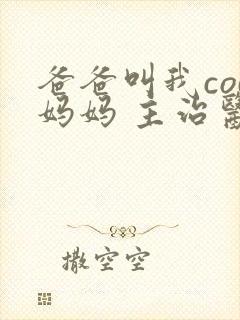 爸爸叫我co
妈妈 主治
撒空空